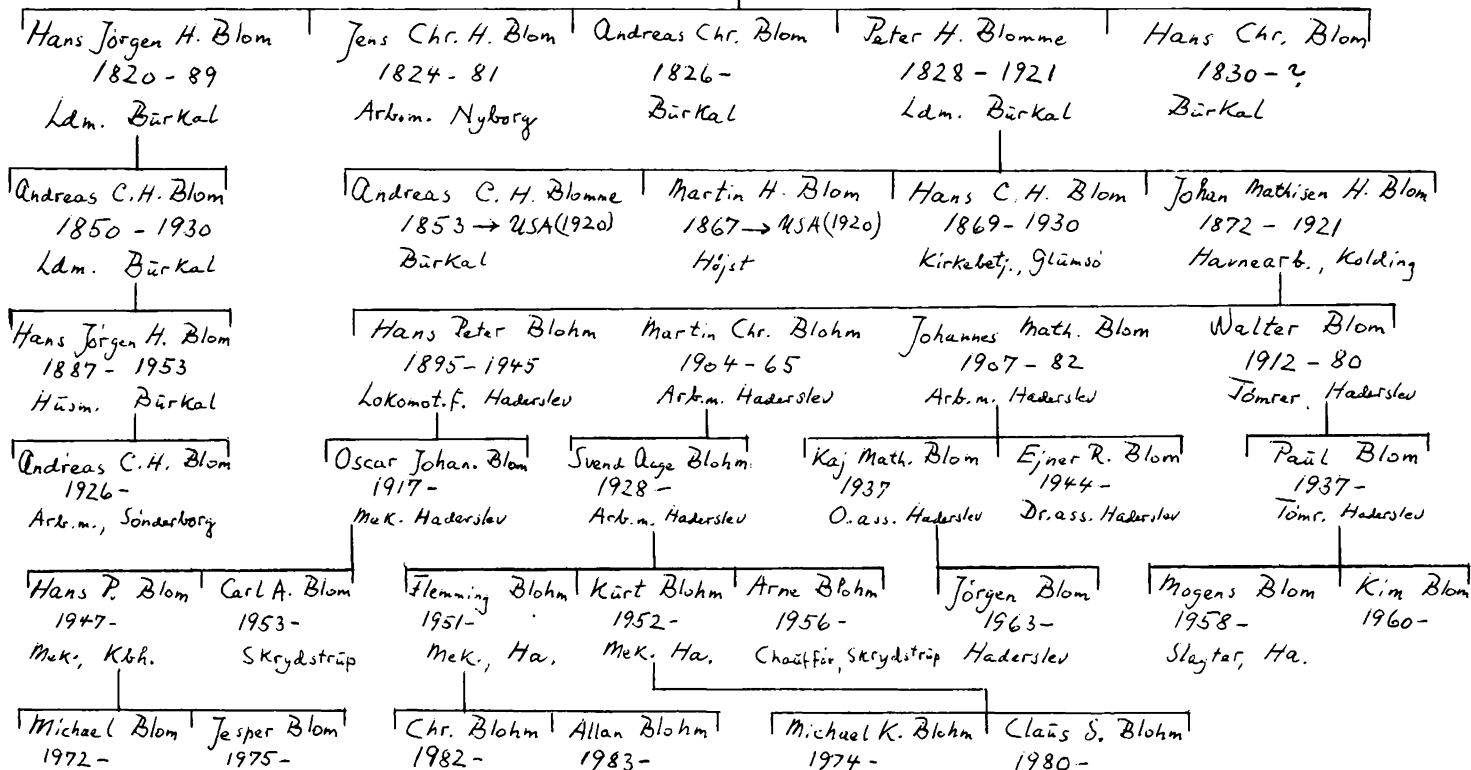 Hans Jörgen H. Blom
1820 - 89
Ldm. Būrkal
Jens Chr. H. Blom
1824 - 81
Arb.m. Nyborg
Andreas Chr. Blom
1826 -
Būrkal
Peter H. Blomme
1828 - 1921
Ldm. Būrkal
Hans Chr. Blom
1830 - ?
Būrkal
Andreas C.H. Blom
1850 - 1930
Ldm. Būrkal
Andreas C. H. Blomme
1853 → USA (1920)
Būrkal
Martin H. Blom
1867 → USA (1920)
Höjst
Hans C. H. Blom
1869 - 1930
Kirkebetj., Glūmsö
Johan Mathisen H. Blom
1872 - 1921
Havnearb., Kolding
Hans Jörgen H. Blom
1887 - 1953
Hūsm. Būrkal
Hans Peter Blohm
1895 - 1945
Lokomot.f. Haderslev
Martin Chr. Blohm
1904 - 65
Arb.m. Haderslev
Johannes Math. Blom
1907 - 82
Arb.m. Haderslev
Walter Blom
1912 - 80
Tömrer Haderslev
Andreas C.H. Blom
1926 -
Arb.m., Sönderborg
Oscar Johan. Blom
1917 -
Mek. Haderslev
Svend Aage Blohm
1928 -
Arb.m. Haderslev
Kaj Math. Blom
1937
O.ass. Haderslev
Ejner R. Blom
1944 -
Dr.ass. Haderslev
Paūl Blom
1937 -
Tömr. Haderslev
Hans P. Blom
1947 -
Mek., Kbh.
Carl A. Blom
1953 -
Skrydstrūp
Flemming Blohm
1951 -
Mek., Ha.
Kūrt Blohm
1952 -
Mek. Ha.
Arne Blohm
1956 -
Chaūfför, Skrydstrūp
Jörgen Blom
1963 -
Haderslev
Mogens Blom
1958 -
Slagter, Ha.
Kim Blom
1960 -
Michael Blom
1972 -
Jesper Blom
1975 -
Chr. Blohm
1982 -
Allan Blohm
1983 -
Michael K. Blohm
1974 -
Claūs S. Blohm
1980 -